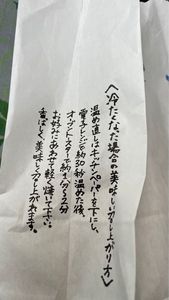 〈冷たくなった場合の美味しい召し上がり方〉
温め直しはキッチンペーパーを下にし、
電子レンジで約30秒温めた後、
オーブントースターで約1分〜2分
お好みにあわせて軽く焼いて下さい。
香ばしく、美味しく召し上がれます。